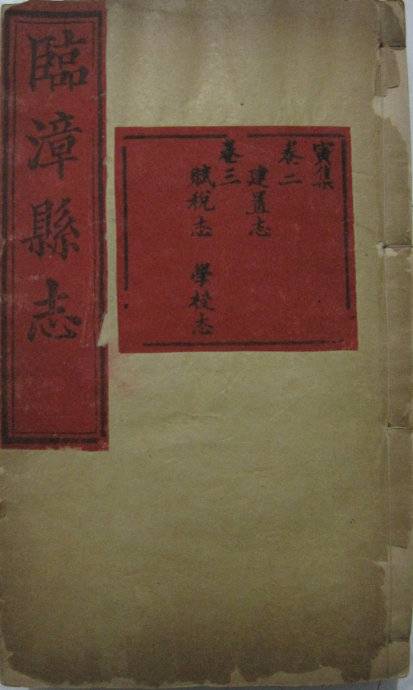 臨漳縣志
寅集
卷二
建置志
卷三
賦稅志 學校志